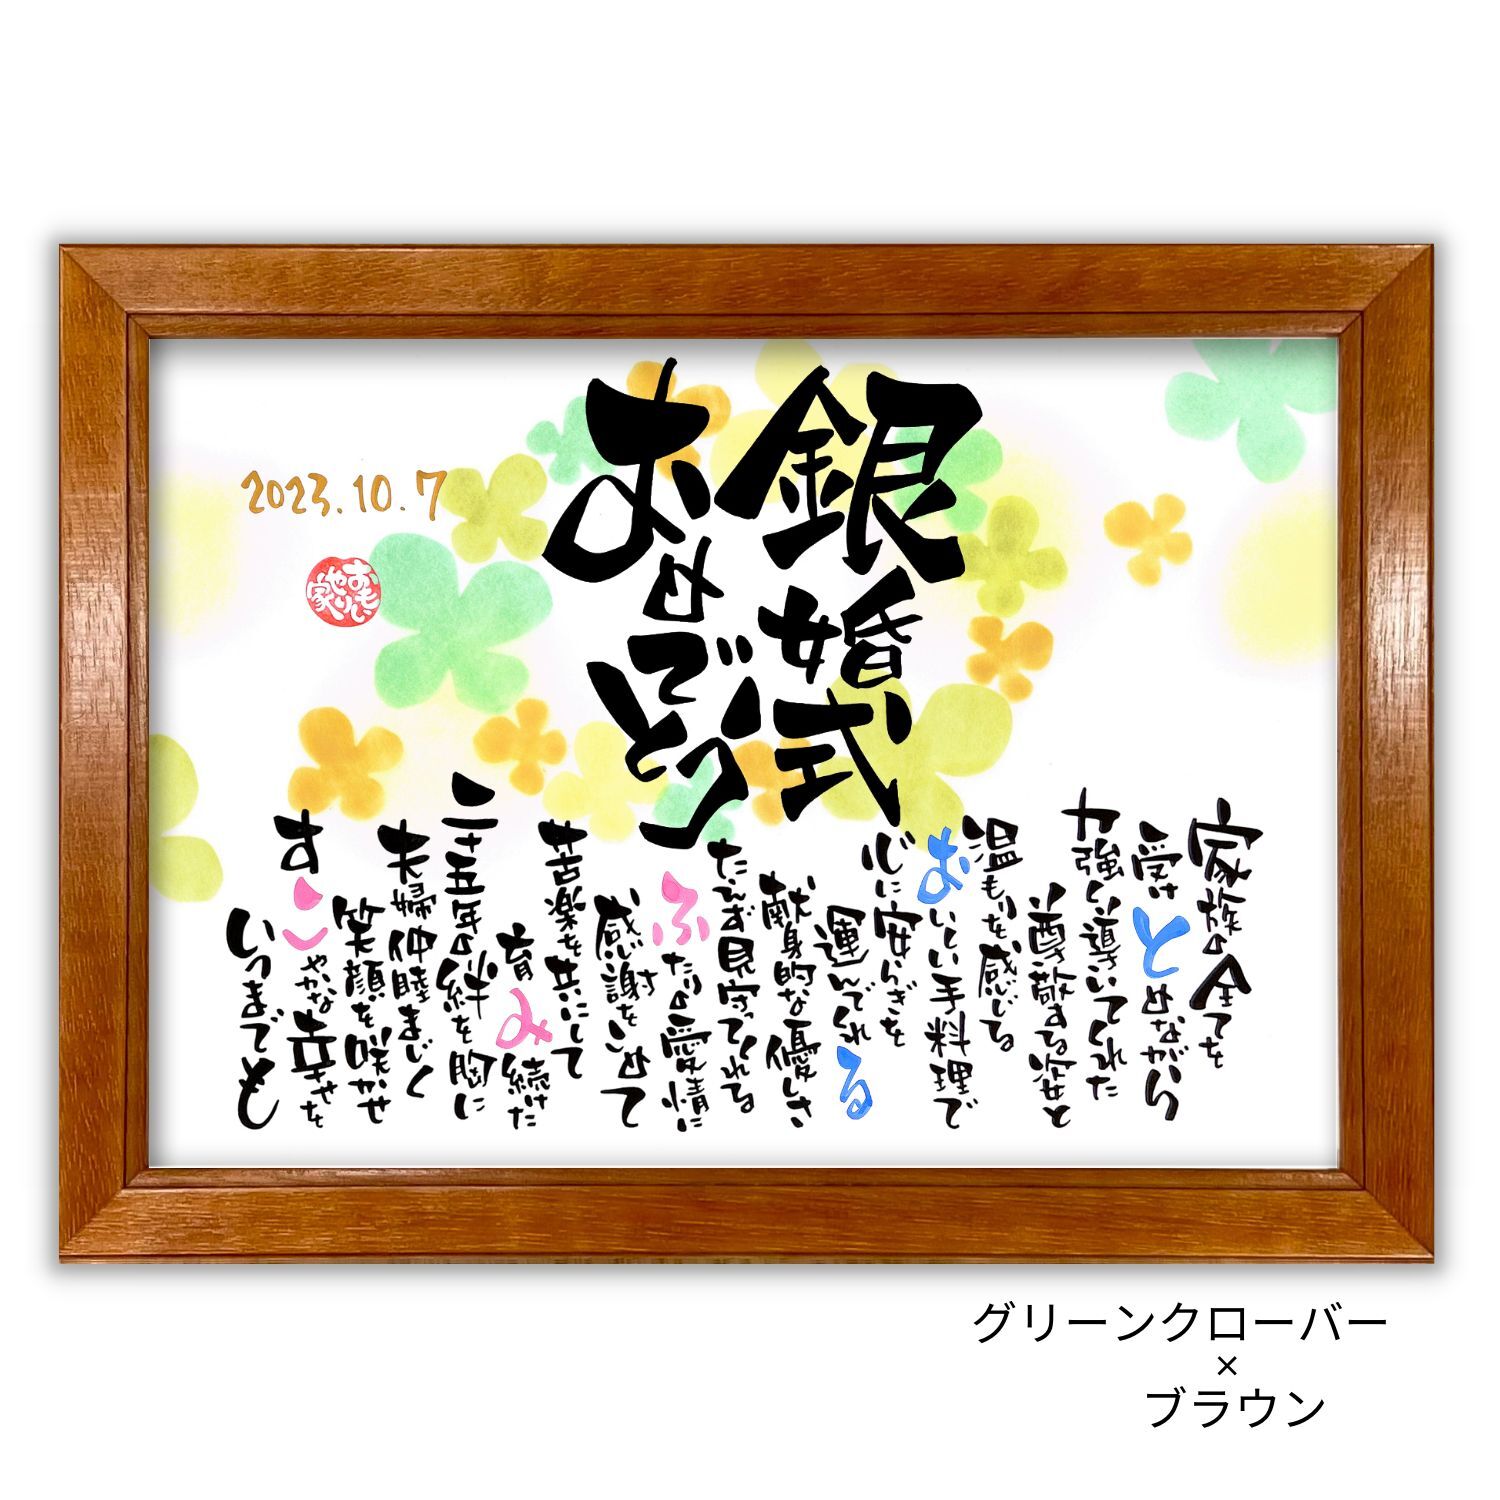 銀婚式
おめでとう
2023.10.7
おもい
やりい
家
家族の全てを
受けとめながら
力強く導いてくれた
尊敬する姿と
温もりを感じる
おいしい手料理で
心に安らぎを
運んでくれる
献身的な優しさ
たえず見守ってくれてる
ふたりの愛情に
感謝をこめて
苦楽を共にして
育み続けた
二十五年の絆を胸に
夫婦仲睦まじく
笑顔を咲かせ
すこやかな幸せを
いつまでも
グリーンクローバー
×
ブラウン